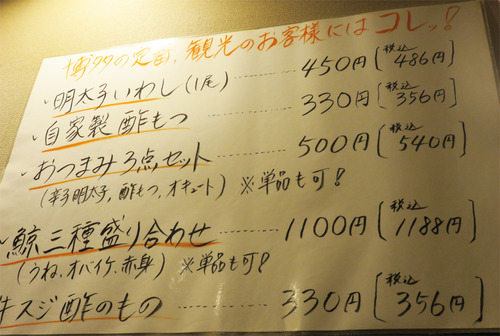 博多の定番、観光のお客様にはコレッ!
・明太子いわし(1尾)……450円[税込486円]
・自家製酢もつ……330円[税込356円]
・おつまみ3点セット……500円[税込540円]
(辛子明太子、酢もつ、オキュート) ※単品も可!
・鯨三種盛り合わせ……1100円[税込1188円]
(うね、オバイケ、赤身) ※単品も可!
牛スジ酢のもの……330円[税込356円]